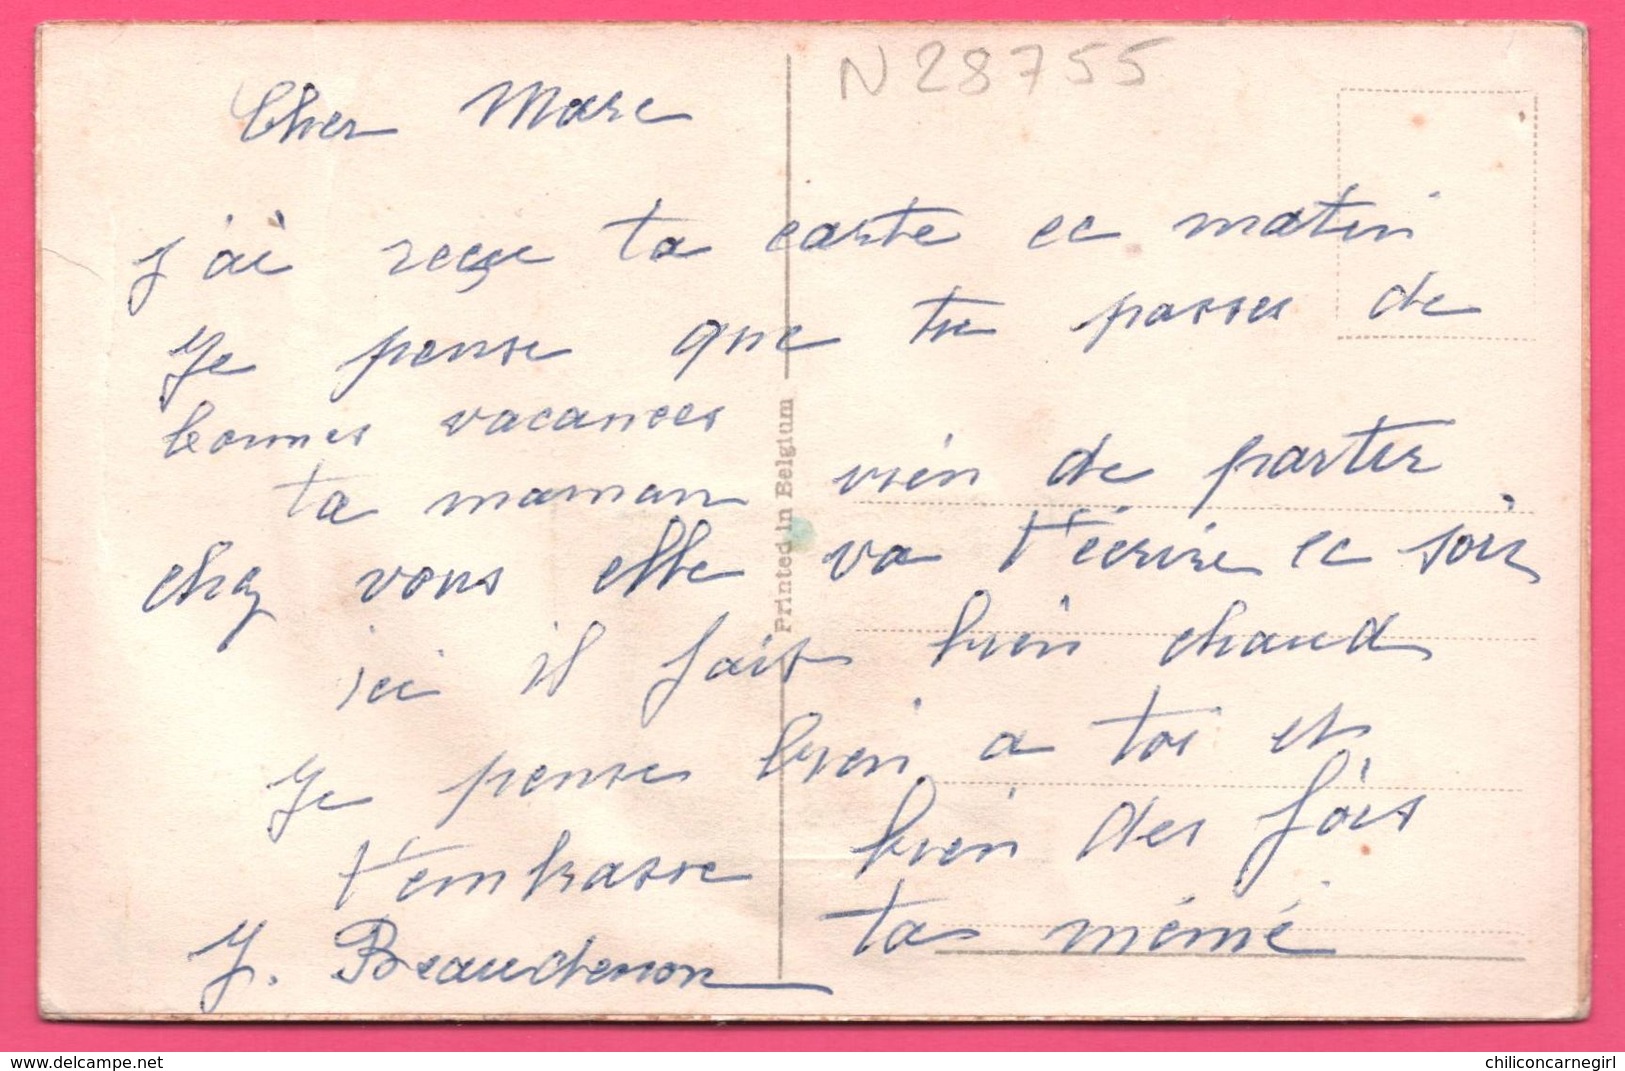 N 28755
Cher Marc
j'ai reçue ta carte ec matin
Je pense que tu passes de
bonnes vacances
ta maman vien de partir
chez vous elle va t'écrire ec soir
ici il fait bien chaud
Je pense bien a toi et
t'embrasse bien des fois
ta mémé
J. Beaudenon
Printed in Belgium
delcampe.net
chiliconcarnegirl